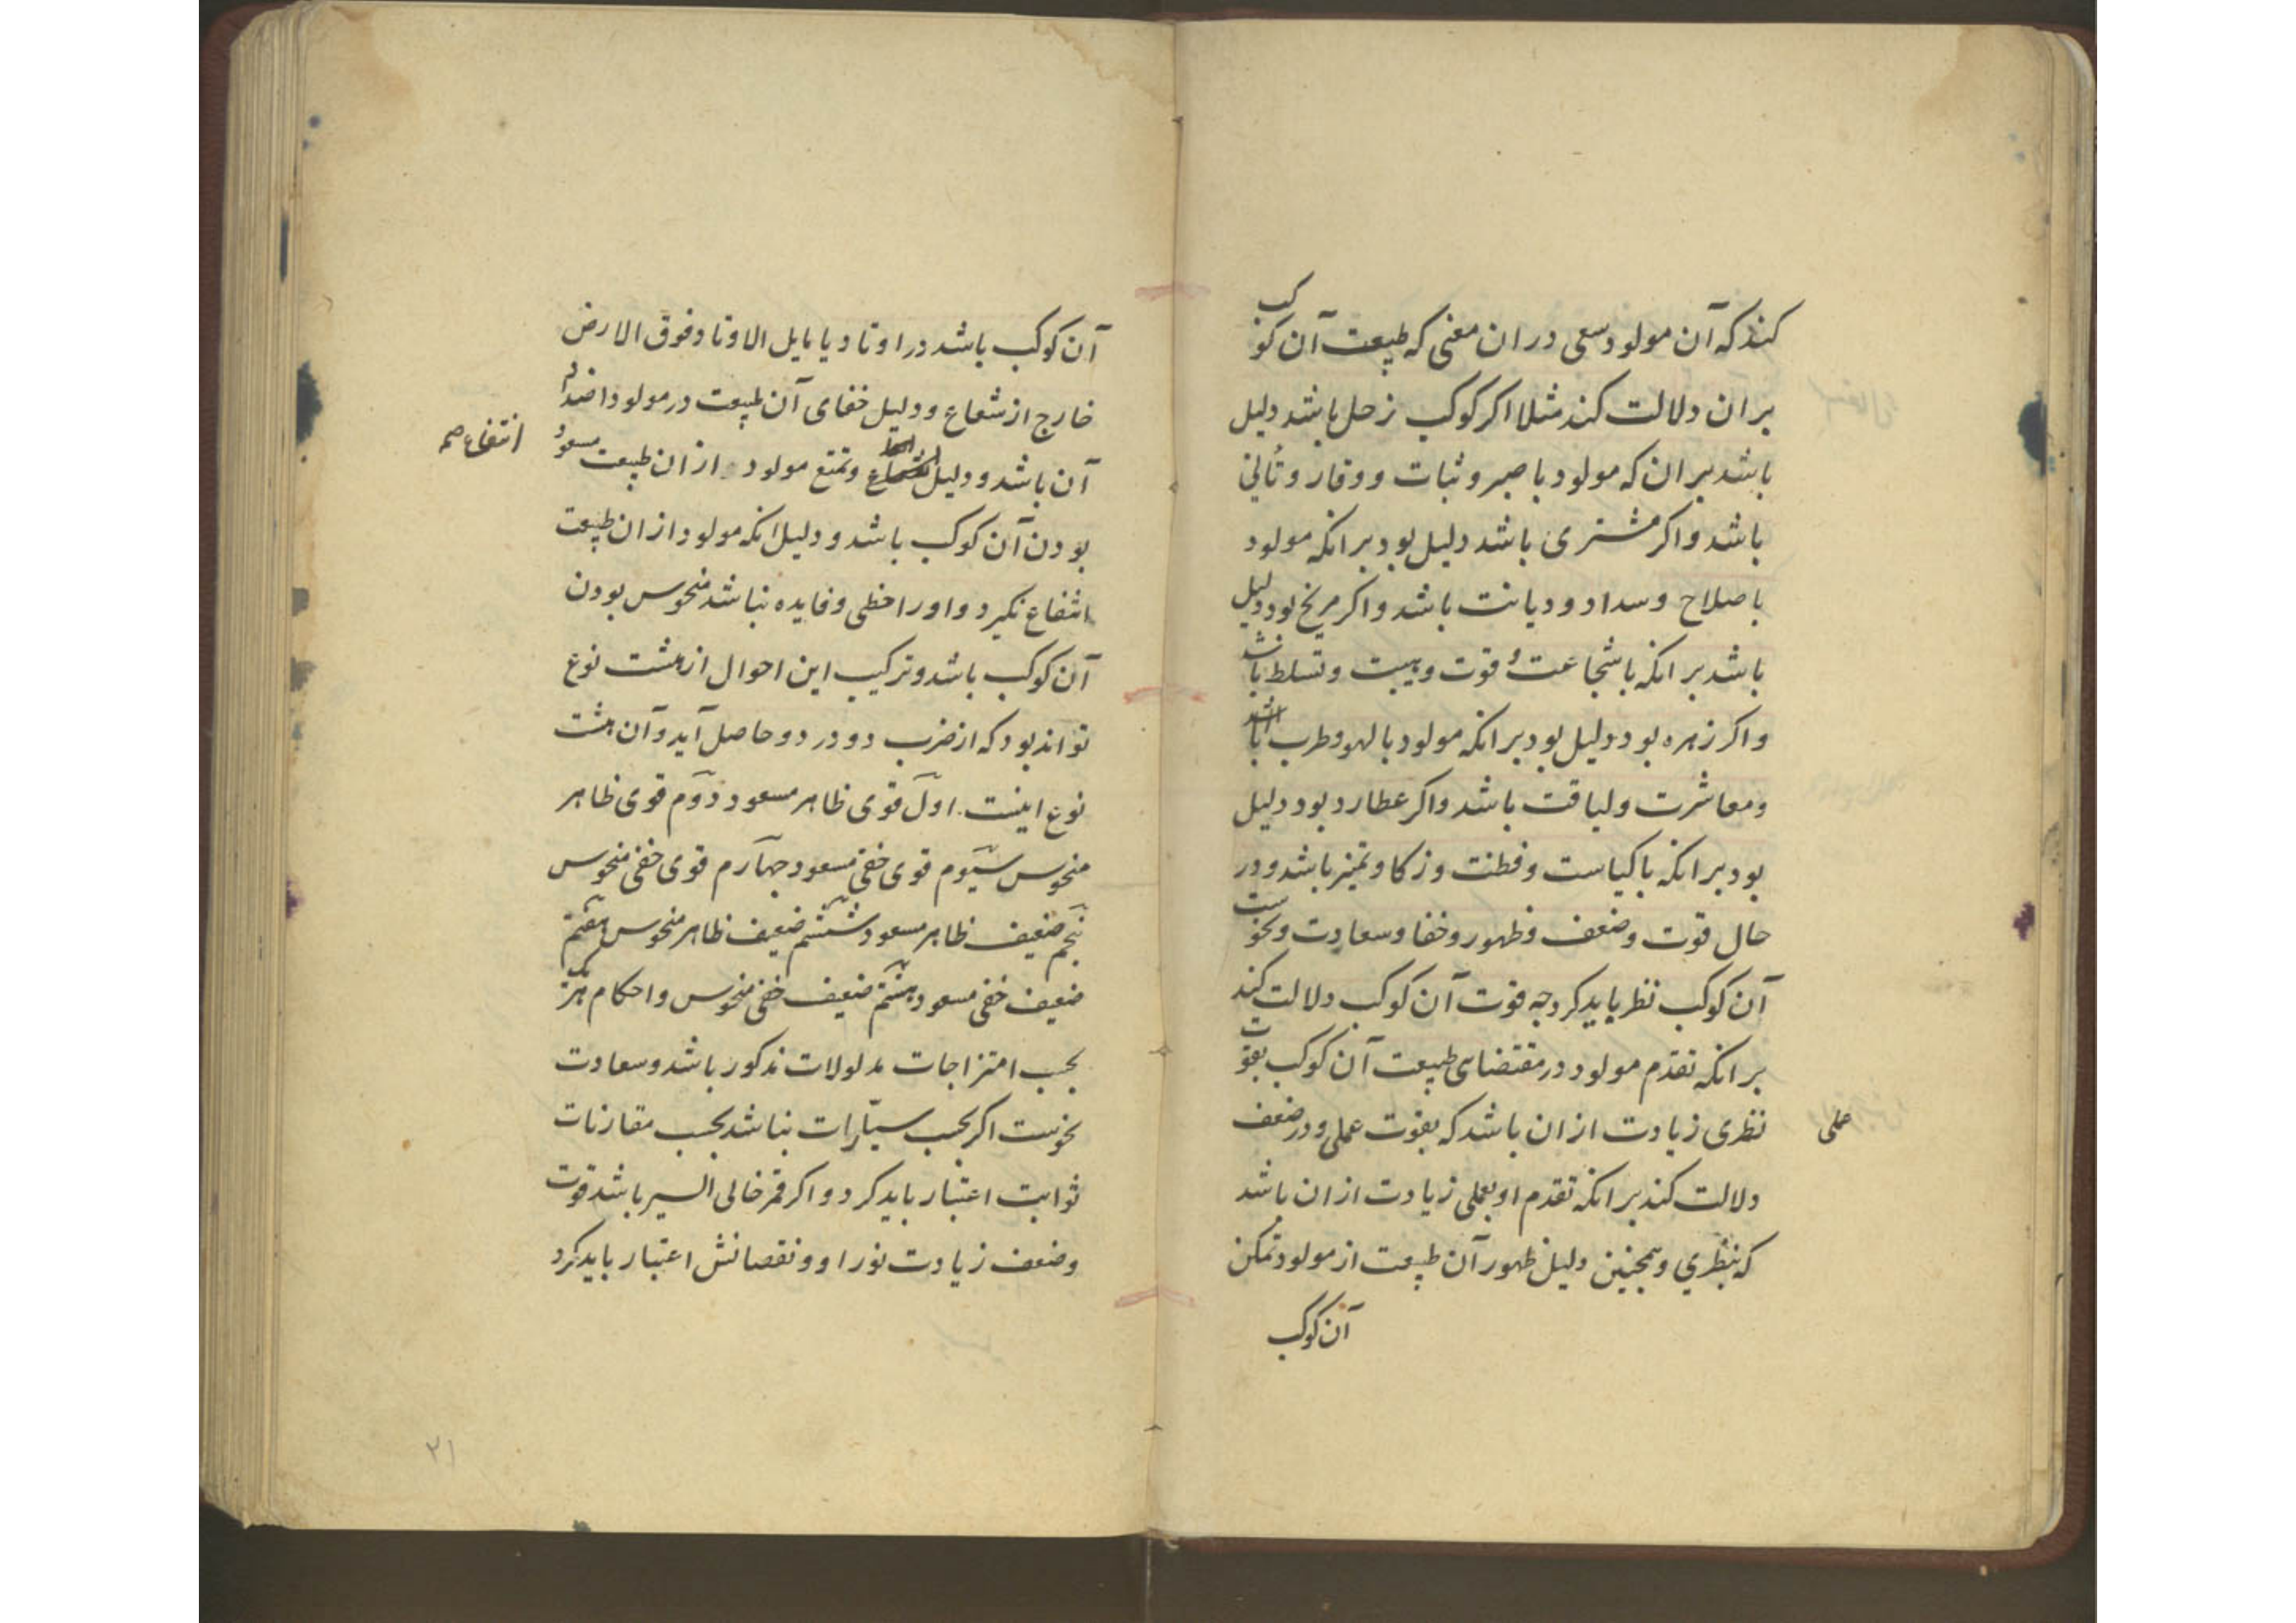 کند که آن مولود سعی در ان معنی که طبیعت آن کوکب
بر ان دلالت کند مثلا اکر کوکب زحل باشد دلیل
باشد بر ان که مولود با صبر و ثبات و وقار و تأنی
باشد و اکر مشتری باشد دلیل بود بر انکه مولود
با صلاح و سداد و دیانت باشد و اکر مریخ بود دلیل
باشد بر انکه با شجاعت و قوت و هیبت و تسلط باشد
و اکر زهره بود دلیل بود بر انکه مولود با لهو و طرب
و معاشرت و لباقت باشد و اکر عطارد بود دلیل
بود بر انکه با کیاست و فطنت و زکا و تمیز باشد و در
حال قوت و ضعف و ظهور و خفا و سعادت و نحوست
آن کوکب نظر باید کرد چه قوت آن کوکب دلالت کند
بر انکه تقدم مولود در مقتضای طبیعت آن کوکب بقوت
نظری زیادت از ان باشد که بقوت عملی و در ضعف
عملی
دلالت کند بر انکه تقدم او بعملی زیادت از ان باشد
که بنظري و همچنین دلیل ظهور آن طبیعت از مولود تمکن
آن کوکب
آن کوکب باشد در اوتاد یا مایل الاوتا و فوق الارض
خارج از شعاع و دلیل خفای آن طبیعت در مولود اضداد
آن باشد و دلیل و تمتع مولود از ان طبیعت مسعود
انتفاع صح
بودن آن کوکب باشد و دلیل انکه مولود از ان طبیعت
انتفاع نکیرد و او را حظی و فایده نباشد منحوس بودن
آن کوکب باشد و ترکیب این احوال از هشت نوع
تواند بود که از ضرب دو در دو حاصل آید و آن هشت
نوع اینست اول قوی ظاهر مسعود دوم قوی ظاهر
منحوس سیوم قوی خفی مسعود چهارم قوی خفی منحوس
پنجم ضعیف ظاهر مسعود ششم ضعیف ظاهر منحوس هفتم
ضعیف خفی مسعود هشتم ضعیف خفی منحوس و احکام هر
بحسب امتزاجات مدلولات مذکور باشد و سعادت
نحوست اکر بحسب سیارات نباشد بحسب مقارنات
ثوابت اعتبار باید کرد و اکر قمر خالی السیر باشد قوت
و ضعف زیادت نور او و نقصانش اعتبار باید کرد
۲۱